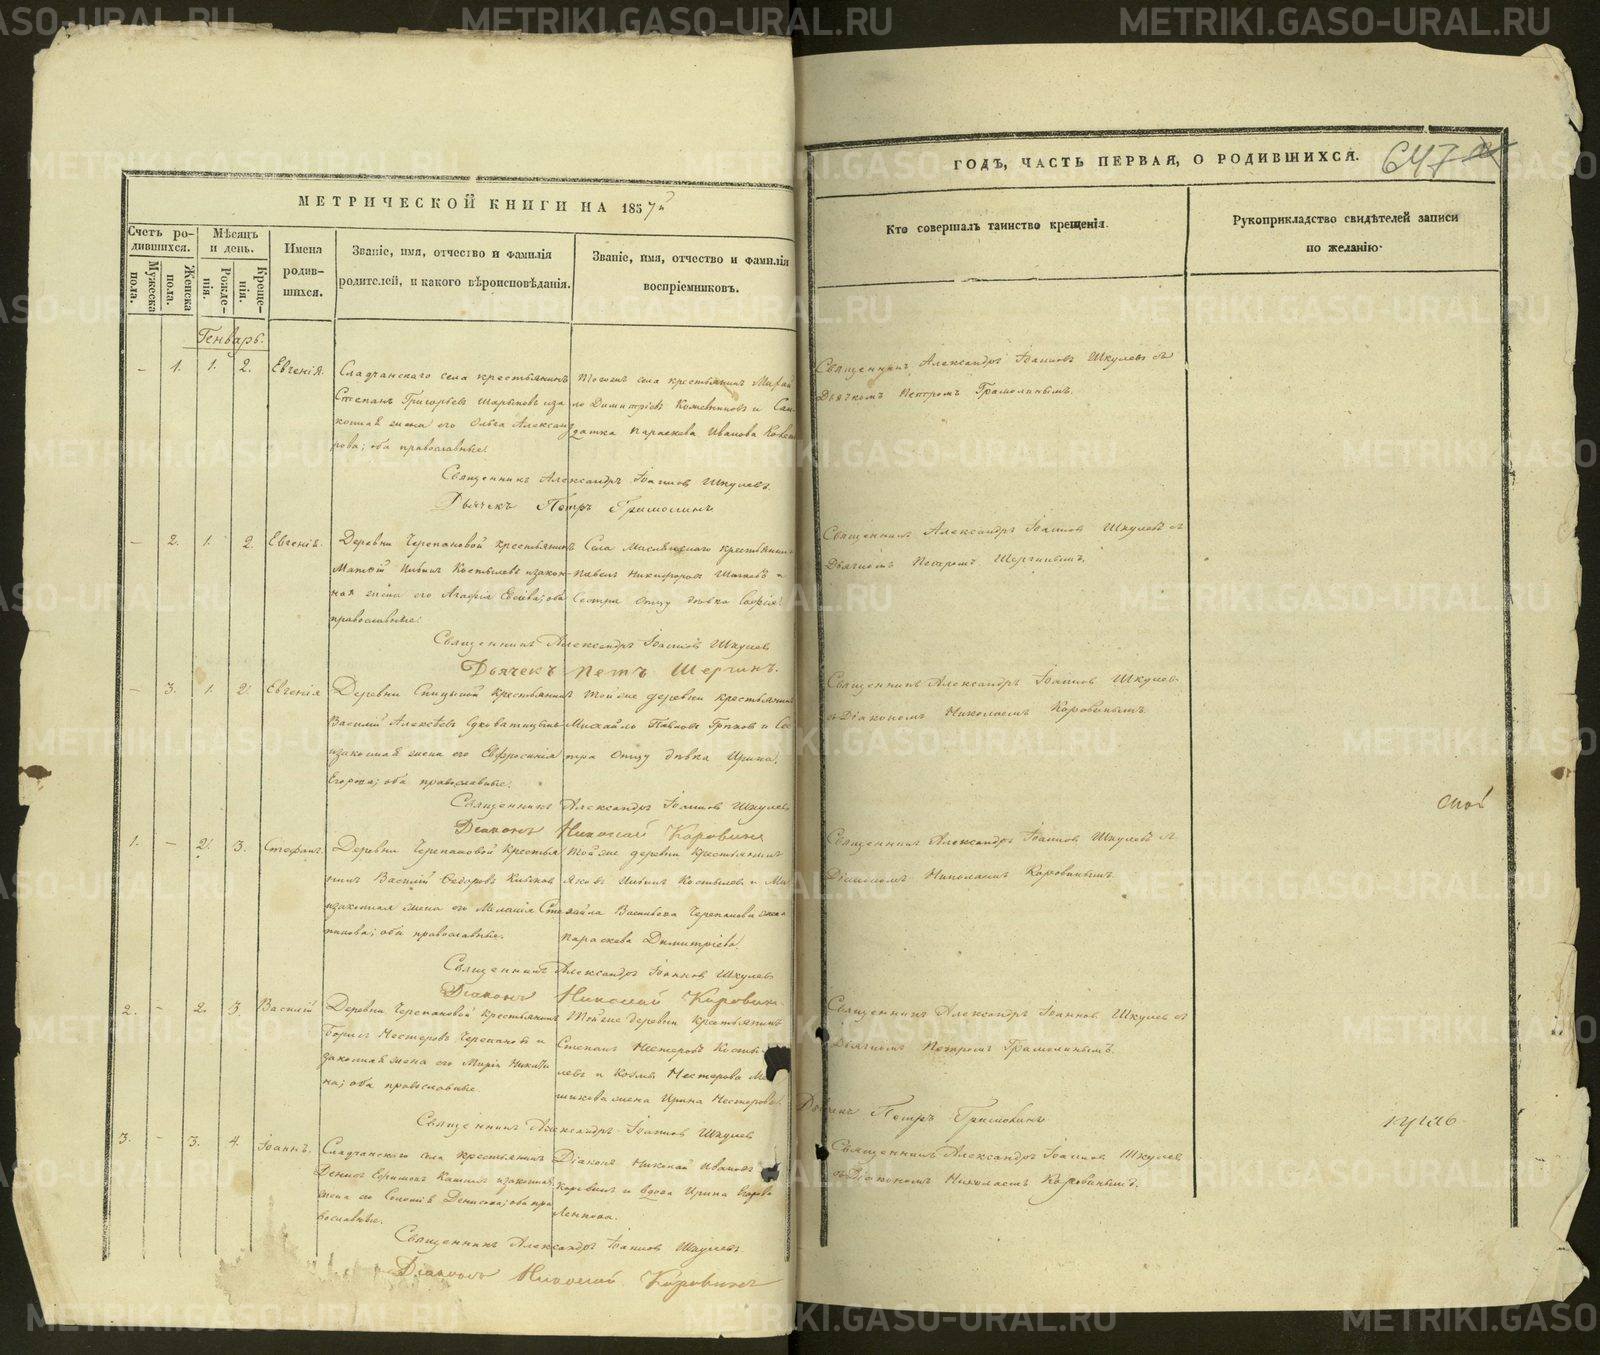 METRIKI.GASO-URAL.RU
МЕТРИЧЕСКОЙ КНИГИ НА 1857й
Счетъ ро-
дившихся.
Мужеска
пола.
Женска
пола.
Мѣсяцъ
и день.
Рожде-
нія.
Креще-
нія.
Имена
родив-
шихся.
Званіе, имя, отчество и фамилія
родителей, и какого вѣроисповѣданія.
Званіе, имя, отчество и фамилія
воспріемниковъ.
Генварь.
– 1. 1. 2. Евгенія.
Сладчанскаго села крестьянинъ
Степанъ Григорьевъ и за-
конная жена его Ольга Александ
рова; оба православные.
Тогожъ села крестьянинъ Михаи
ло Димитріевъ Кожевниковъ и Сол
датка Параскева Иванова
Священникъ Александръ Іоанновъ Шкулевъ
Дьячекъ Петръ Грамолинъ
– 2. 1. 2. Евгенія.
Деревни Черепановой крестьянинъ
Матвѣй Ильинъ Костылевъ и закон-
ная жена его Агафія оба
православные.
Села крестьянинъ
Павелъ Никифоровъ и
Сестра отцу дѣвка Софія
Священникъ Александръ Іоанновъ Шкулевъ
Дьячекъ Петръ Шергинъ.
– 3. 1. 2. Евгенія
Деревни Спицыной крестьянинъ
Василій Алексѣевъ
и законная жена его Евфросинія
Егорова; оба православные.
Той же деревни крестьянинъ
Михайло Павловъ и Сес
тра отцу дѣвка Ирина.
Священникъ Александръ Іоанновъ Шкулевъ
Діаконъ Николай Коровинъ
1. – 2. 3. Стефанъ.
Деревни Черепановой крестья
нинъ Василій Ѳедоровъ
и законная жена его Меланія Сте
панова; оба православные.
Той же деревни крестьянинъ
Яковъ Ильинъ Костылевъ и Ми
хайла Васильева Черепанова жена
Параскева Димитріева
Священникъ Александръ Іоанновъ Шкулевъ
Діаконъ Николай Коровинъ
2. – 2. 3. Василій
Деревни Черепановой крестьянинъ
Борисъ Нестеровъ Черепановъ и
законная жена его Марія Никити
на; оба православные
Той же деревни крестьянинъ
Степанъ Нестеровъ Косты-
левъ и Козмы Нестерова
жена Ирина Нестерова.
Священникъ Александръ Іоанновъ Шкулевъ
3. – 3. 4. Іоаннъ.
Сладчанскаго села крестьянинъ
Денисъ Ефимовъ и законная
жена его Денисова; оба пра
вославные.
Діаконъ Николай Ивановъ
Коровинъ и вдова Ирина Егорова
Священникъ Александръ Іоанновъ Шкулевъ
Діаконъ Николай Коровинъ
ГОДЪ, ЧАСТЬ ПЕРВАЯ, О РОДИВШИХСЯ.
647
Кто совершалъ таинство крещенія.
Рукоприкладство свидѣтелей записи
по желанію.
Священникъ Александръ Іоанновъ Шкулевъ съ
Дьячкомъ Петромъ Грамолинымъ.
Священникъ Александръ Іоанновъ Шкулевъ съ
Дьячкомъ Петромъ Шергинымъ.
Священникъ Александръ Іоанновъ Шкулевъ
съ Діакономъ Николаемъ Коровинымъ.
Священникъ Александръ Іоанновъ Шкулевъ съ
Діакономъ Николаемъ Коровинымъ.
Священникъ Александръ Іоанновъ Шкулевъ съ
Дьячкомъ Петромъ Грамолинымъ.
Петръ Грамолинъ
Священникъ Александръ Іоанновъ Шкулевъ
съ Діакономъ Николаемъ Коровинымъ.